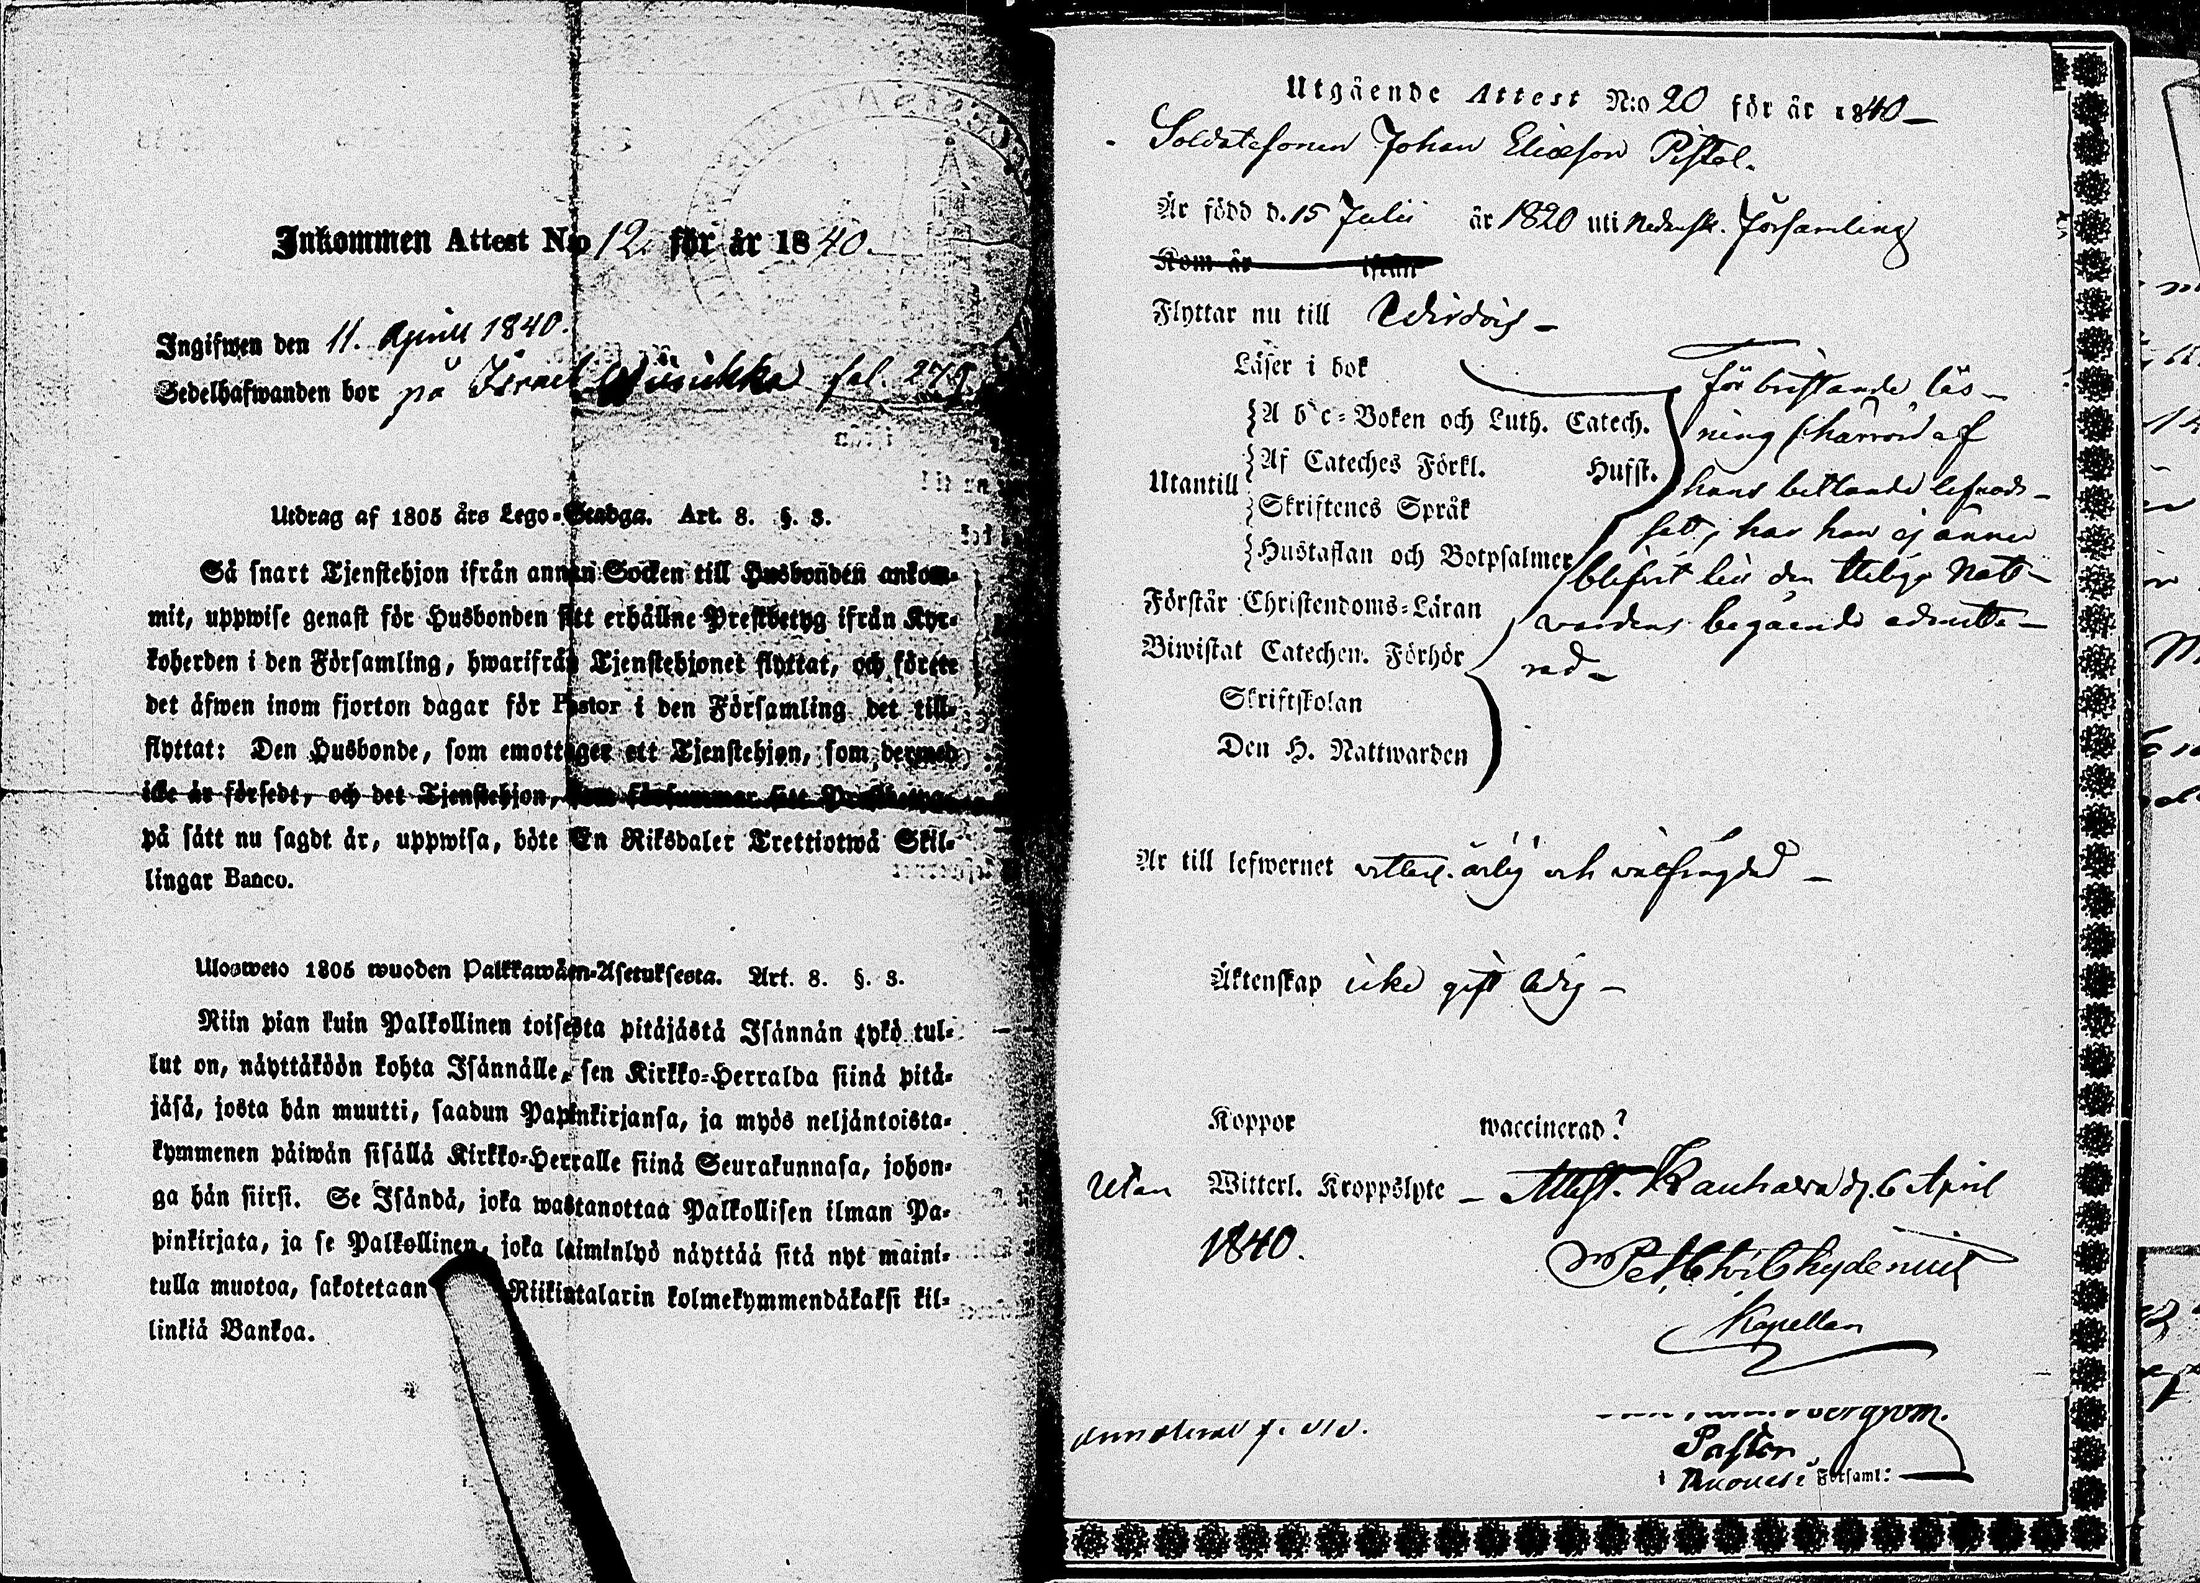 Inkommen Attest N:o 12 för år 1840.
Ingifwen den 11. April 1840.
Sedelhafwanden bor på Israel fol. 279.
Utdrag af 1805 års Lego-Stadga. Art. 8. §. 3.
Så snart Tjenstehjon ifrån annan Socken till Husbonden ankom-
mit, uppwise genast för Husbonden sitt erhållne Prestbetyg ifrån Kyr-
koherden i den Församling, hwarifrån Tjenstehjonet flyttat, och förete
det äfwen inom fjorton dagar för Pastor i den Församling det till-
flyttat: Den Husbonde, som emottager ett Tjenstehjon, som dermed
icke är försedt, och det Tjenstehjon, som försummar sitt Prestbetyg
på sätt nu sagdt är, uppwisa, böte En Riksdaler Trettiotwå Skil-
lingar Banco.
Ulosweto 1805 wuoden Palkkawäen-Asetuksesta. Art. 8. §. 3.
Niin pian kuin Palkollinen toisesta pitäjästä Isännän tykö tul-
lut on, näyttäköön kohta Isännälle, sen Kirkko-Herralda siinä pitä-
jäsä, josta hän muutti, saadun Papinkirjansa, ja myös neljäntoista-
kymmenen päiwän sisällä Kirkko-Herralle siinä Seurakunnasa, johon-
ga hän siirsi. Se Isändä, joka wastanottaa Palkollisen ilman Pa-
pinkirjata, ja se Palkollinen, joka laiminlyö näyttää sitä nyt maini-
tulla muotoa, sakotetaan Riikintalarin kolmekymmendäkaksi kil-
linkiä Bankoa.
Utgående Attest N:o 20 för år 1840
Soldatesonen Johan Eliæson Pistol.
Är född d. 15 Julii år 1820 uti Nedansk. Församling
Kom år ifrån
Flyttar nu till Wirdois
Läser i bok
A b c-Boken och Luth. Catech.
Af Cateches Förkl. Hufst.
Utantill
Skriftenes Språk
Hustaflan och Botpsalmer
Förstår Christendoms-Läran
Biwistat Catechen. Förhör
Skriftskolan
Den H. Nattwarden
För bristande läs-
ning, härrörd af
hans bettlande lefnads-
sätt, har han ej ännu
blifvit till den Heliga Natt-
vardens begående admitte-
rad
Är till lefwernet vitterl. ärlig och välfrägdad
Äktenskap icke gift ledig
Koppor waccinerad?
Utan Witterl. Kroppslyte Attest. Kauhava d. 6 April
1840.
Kapellan
Pastor
i Ruovesi Församl: